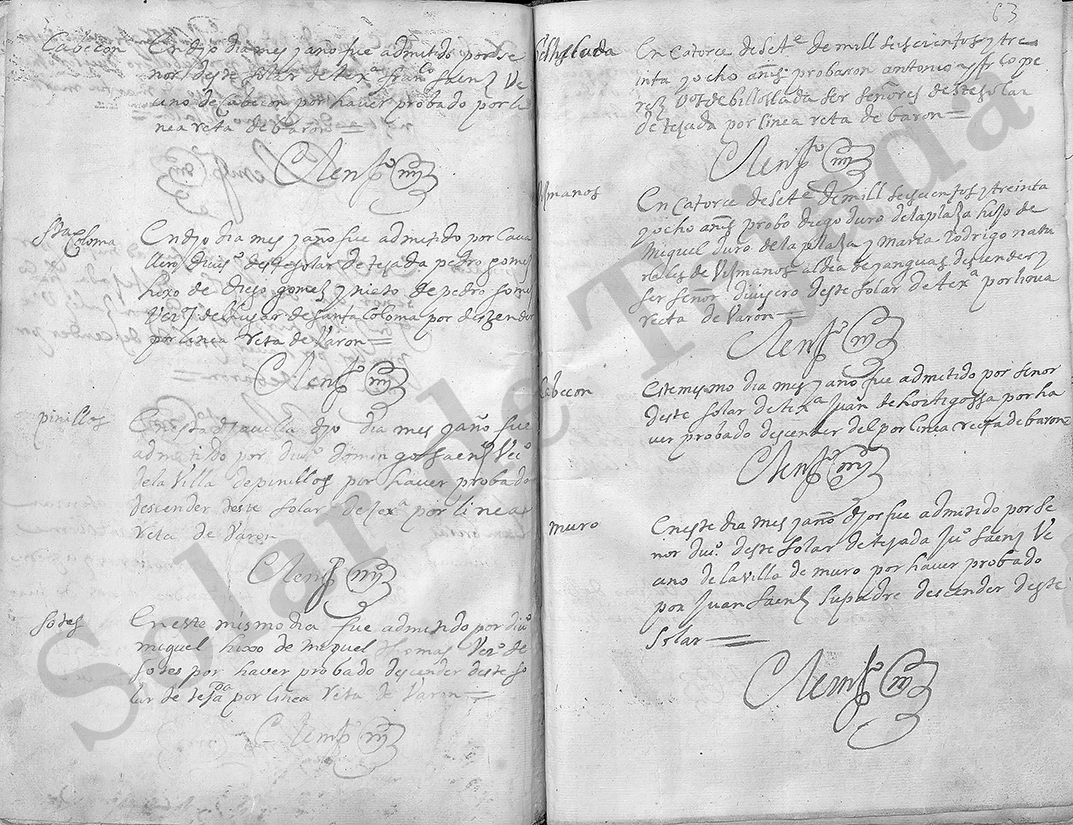 Cabeçon
En djo dia mes y año fue admitido por se
nor deste solar de texª franco saenz Ve
zino de Cabeçon por haver probado por li
nea reta de baron
Clemte
Sta Coloma
En djo dia mes y año fue admitido por Cava
llero Diviso deste solar de tejada pedro gomez
hixo de diego gomez y nieto de pedro gomez
del lugar de Santa Coloma por deszender
por linea reta de Varon
Clemte
pinillos
dia mes y año fue
admitido por divo domingo saenz Veco
de la Villa de pinillos por haver probado
descender deste solar de texª por linea
Reta de Varon
Clemte
sotes
En este mismo dia fue admitido por divo
miguel hixo de miguel thomas Vezo de
sotes por haver probado descender deste so
lar de tejada por linea reta de Varon
Clemte
63
En Catorce de Sete de mill seiscientos y tre
inta y ocho años probaron antonio y frco pe
rez de billoslada ser señores deste solar
de tejada por linea reta de baron
Clemte
Vismanos
En Catorce de Sete de mill seiscientos y treinta
y ocho años probo diego duro de la plaza hijo de
Miguel duro de la plaza y maria Rodrigo natu
rales de Vismanos aldea de yanguas descender y
ser señor divisero deste solar de texª por linea
recta de Varon
Clemte
Cabeçon
Este mismo dia mes y año fue admitido por señor
deste solar de texª Juan de hortigossa por ha
ver probado descender del por linea recta de baron
Clemte
muro
En este dia mes y año djos fue admitido por se
nor divo deste solar de tejada Juo saenz Ve
zino de la villa de muro por haver probado
por Juan saenz su padre descender deste
solar
Clemte
Solar de Tejada